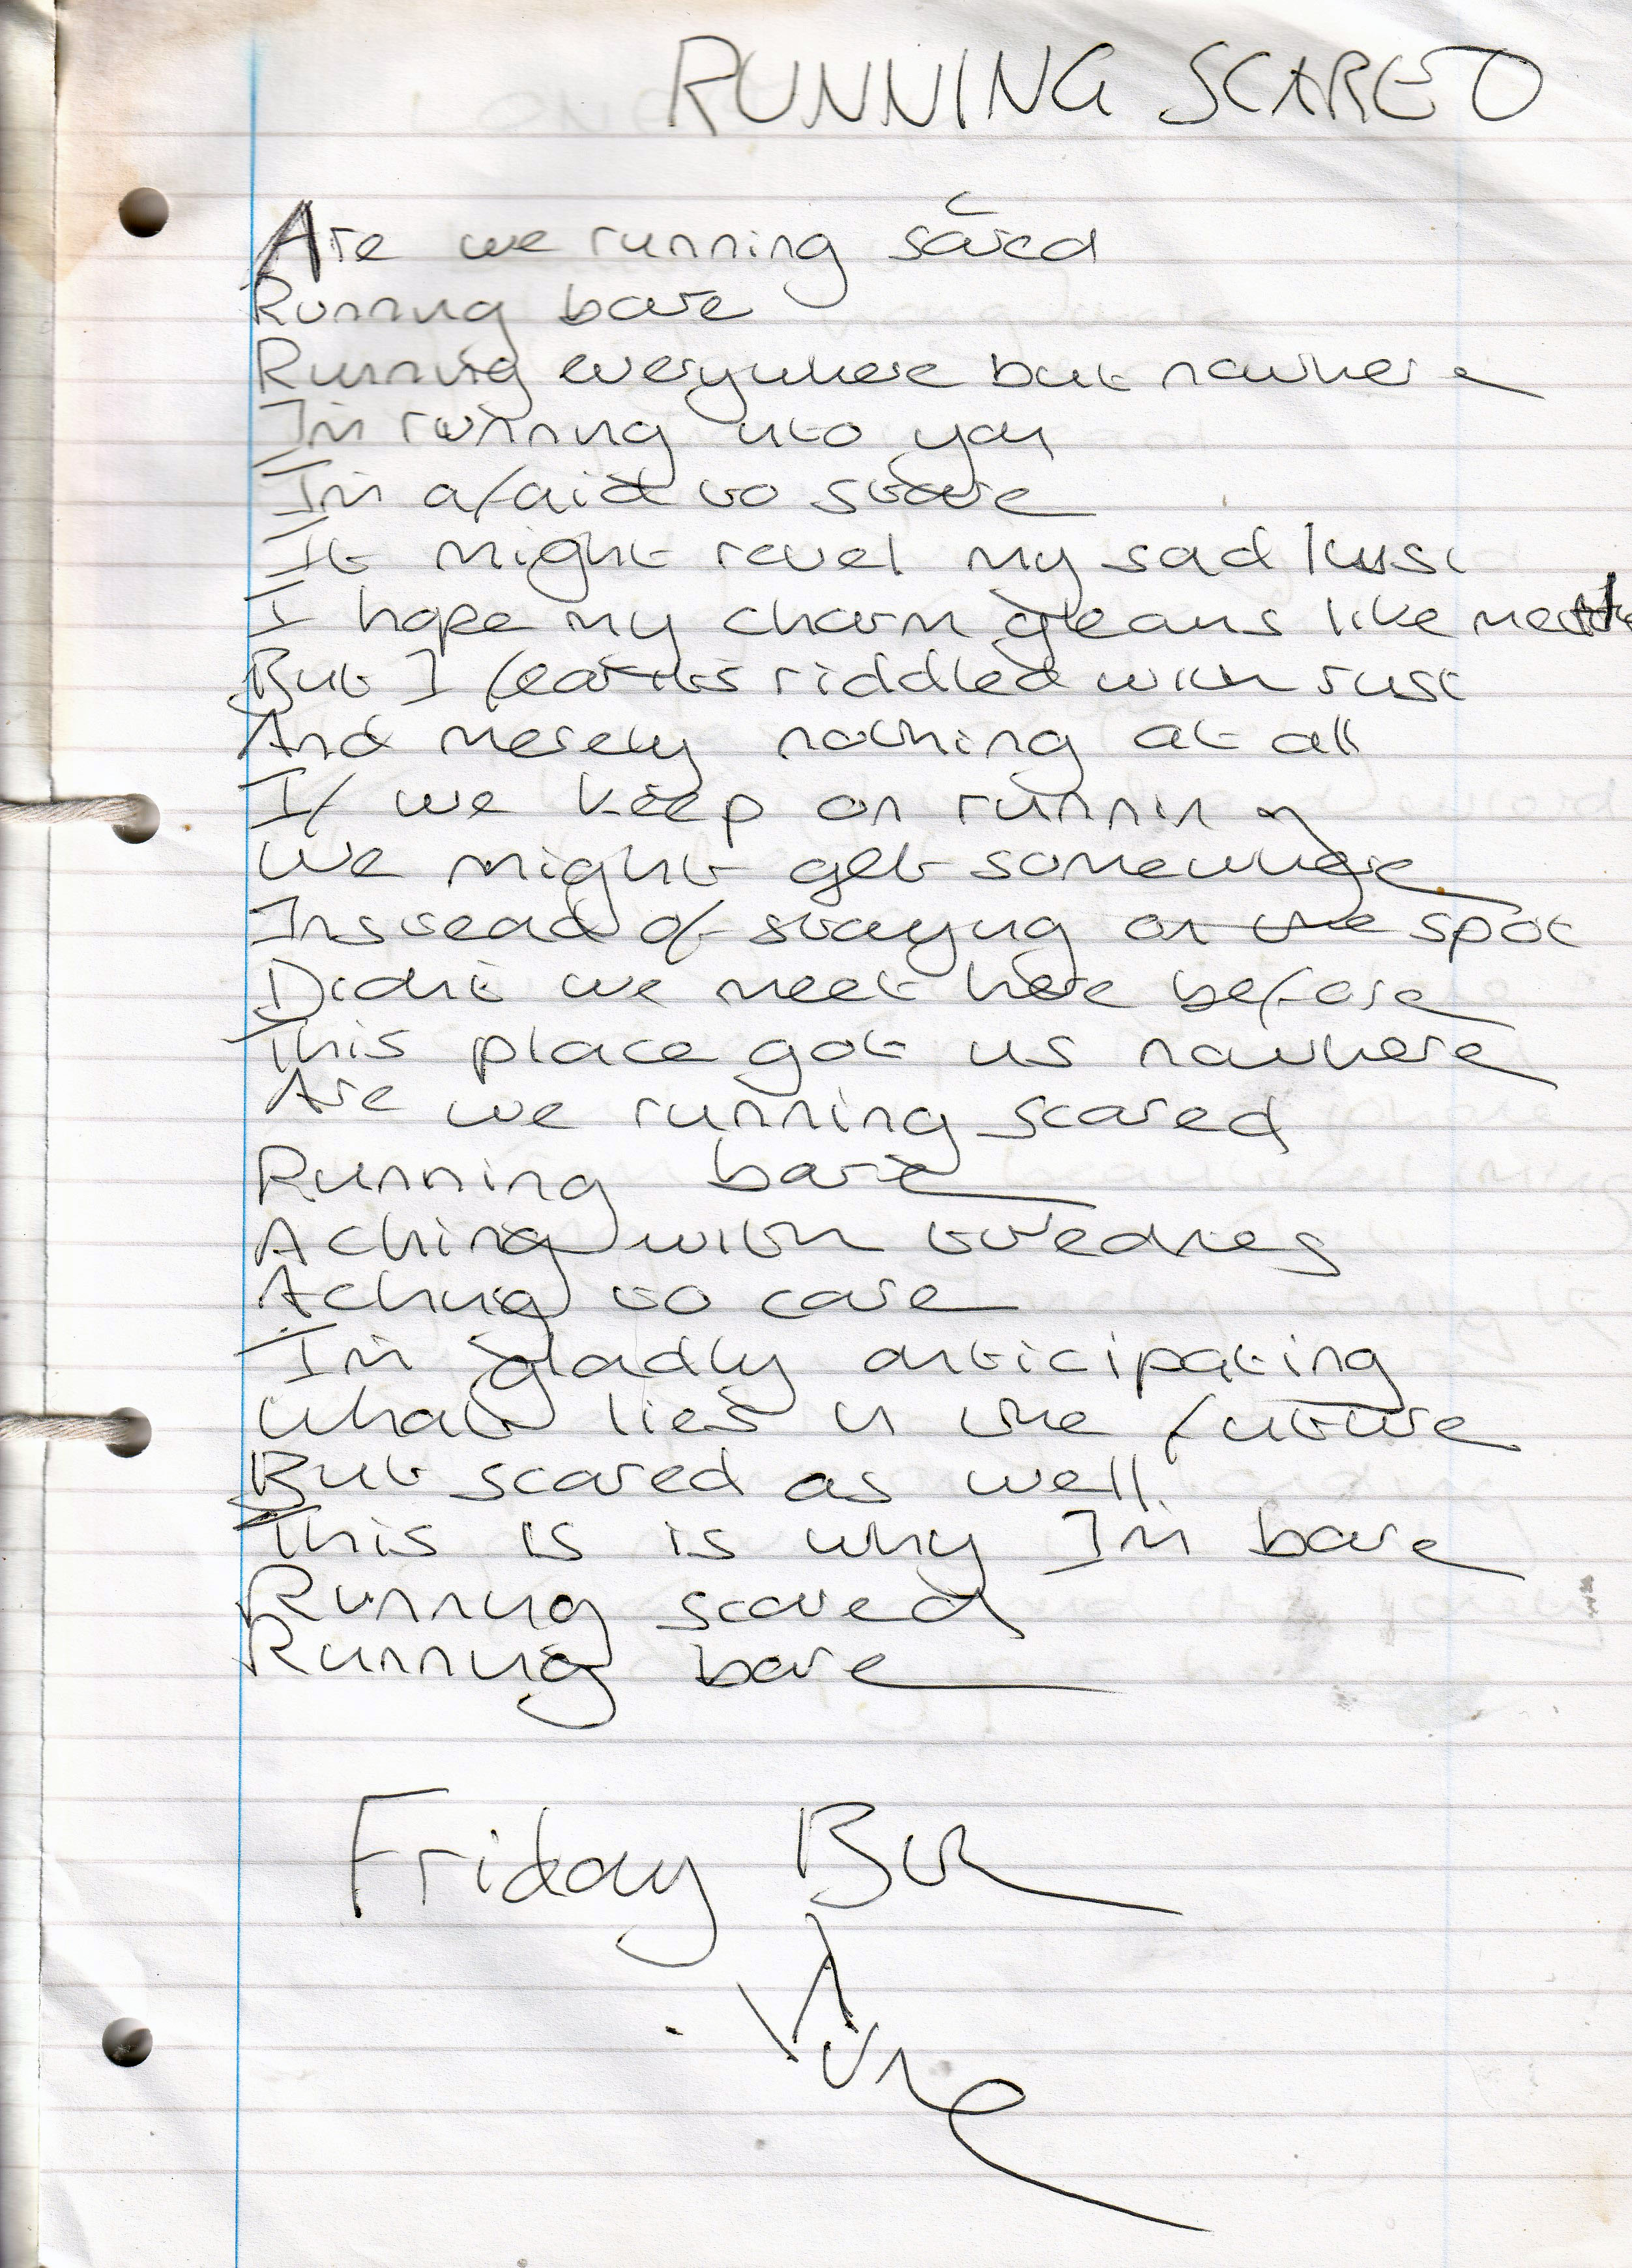 RUNNING SCARED
Are we running scared
Running bare
Running everywhere but nowhere
Im running into you
Im afraid to stare
It might revel my sad lust
I hope my charm gleams like
But I fear its riddled with rust
And merely nothing at all
If we keep on running
We might get somewhere
Instead of staying on the spot
Didnt we meet here before
This place got us nowhere
Are we running scared
Running bare
Aching with
Aching to care
Im gladly anticipating
What lies in the future
But scared as well.
This is is why Im bare
Running scared
Running bare
Friday
June